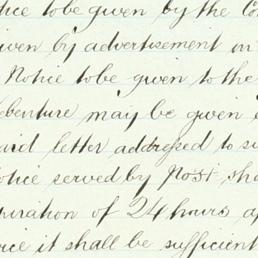 tice to be given by the Co
iven by advertisement in
Notice to be given to the
ebenture may be given
aid letter addressed to su
otice served by Post sha
piration of 24 hours a
ice it shall be sufficient